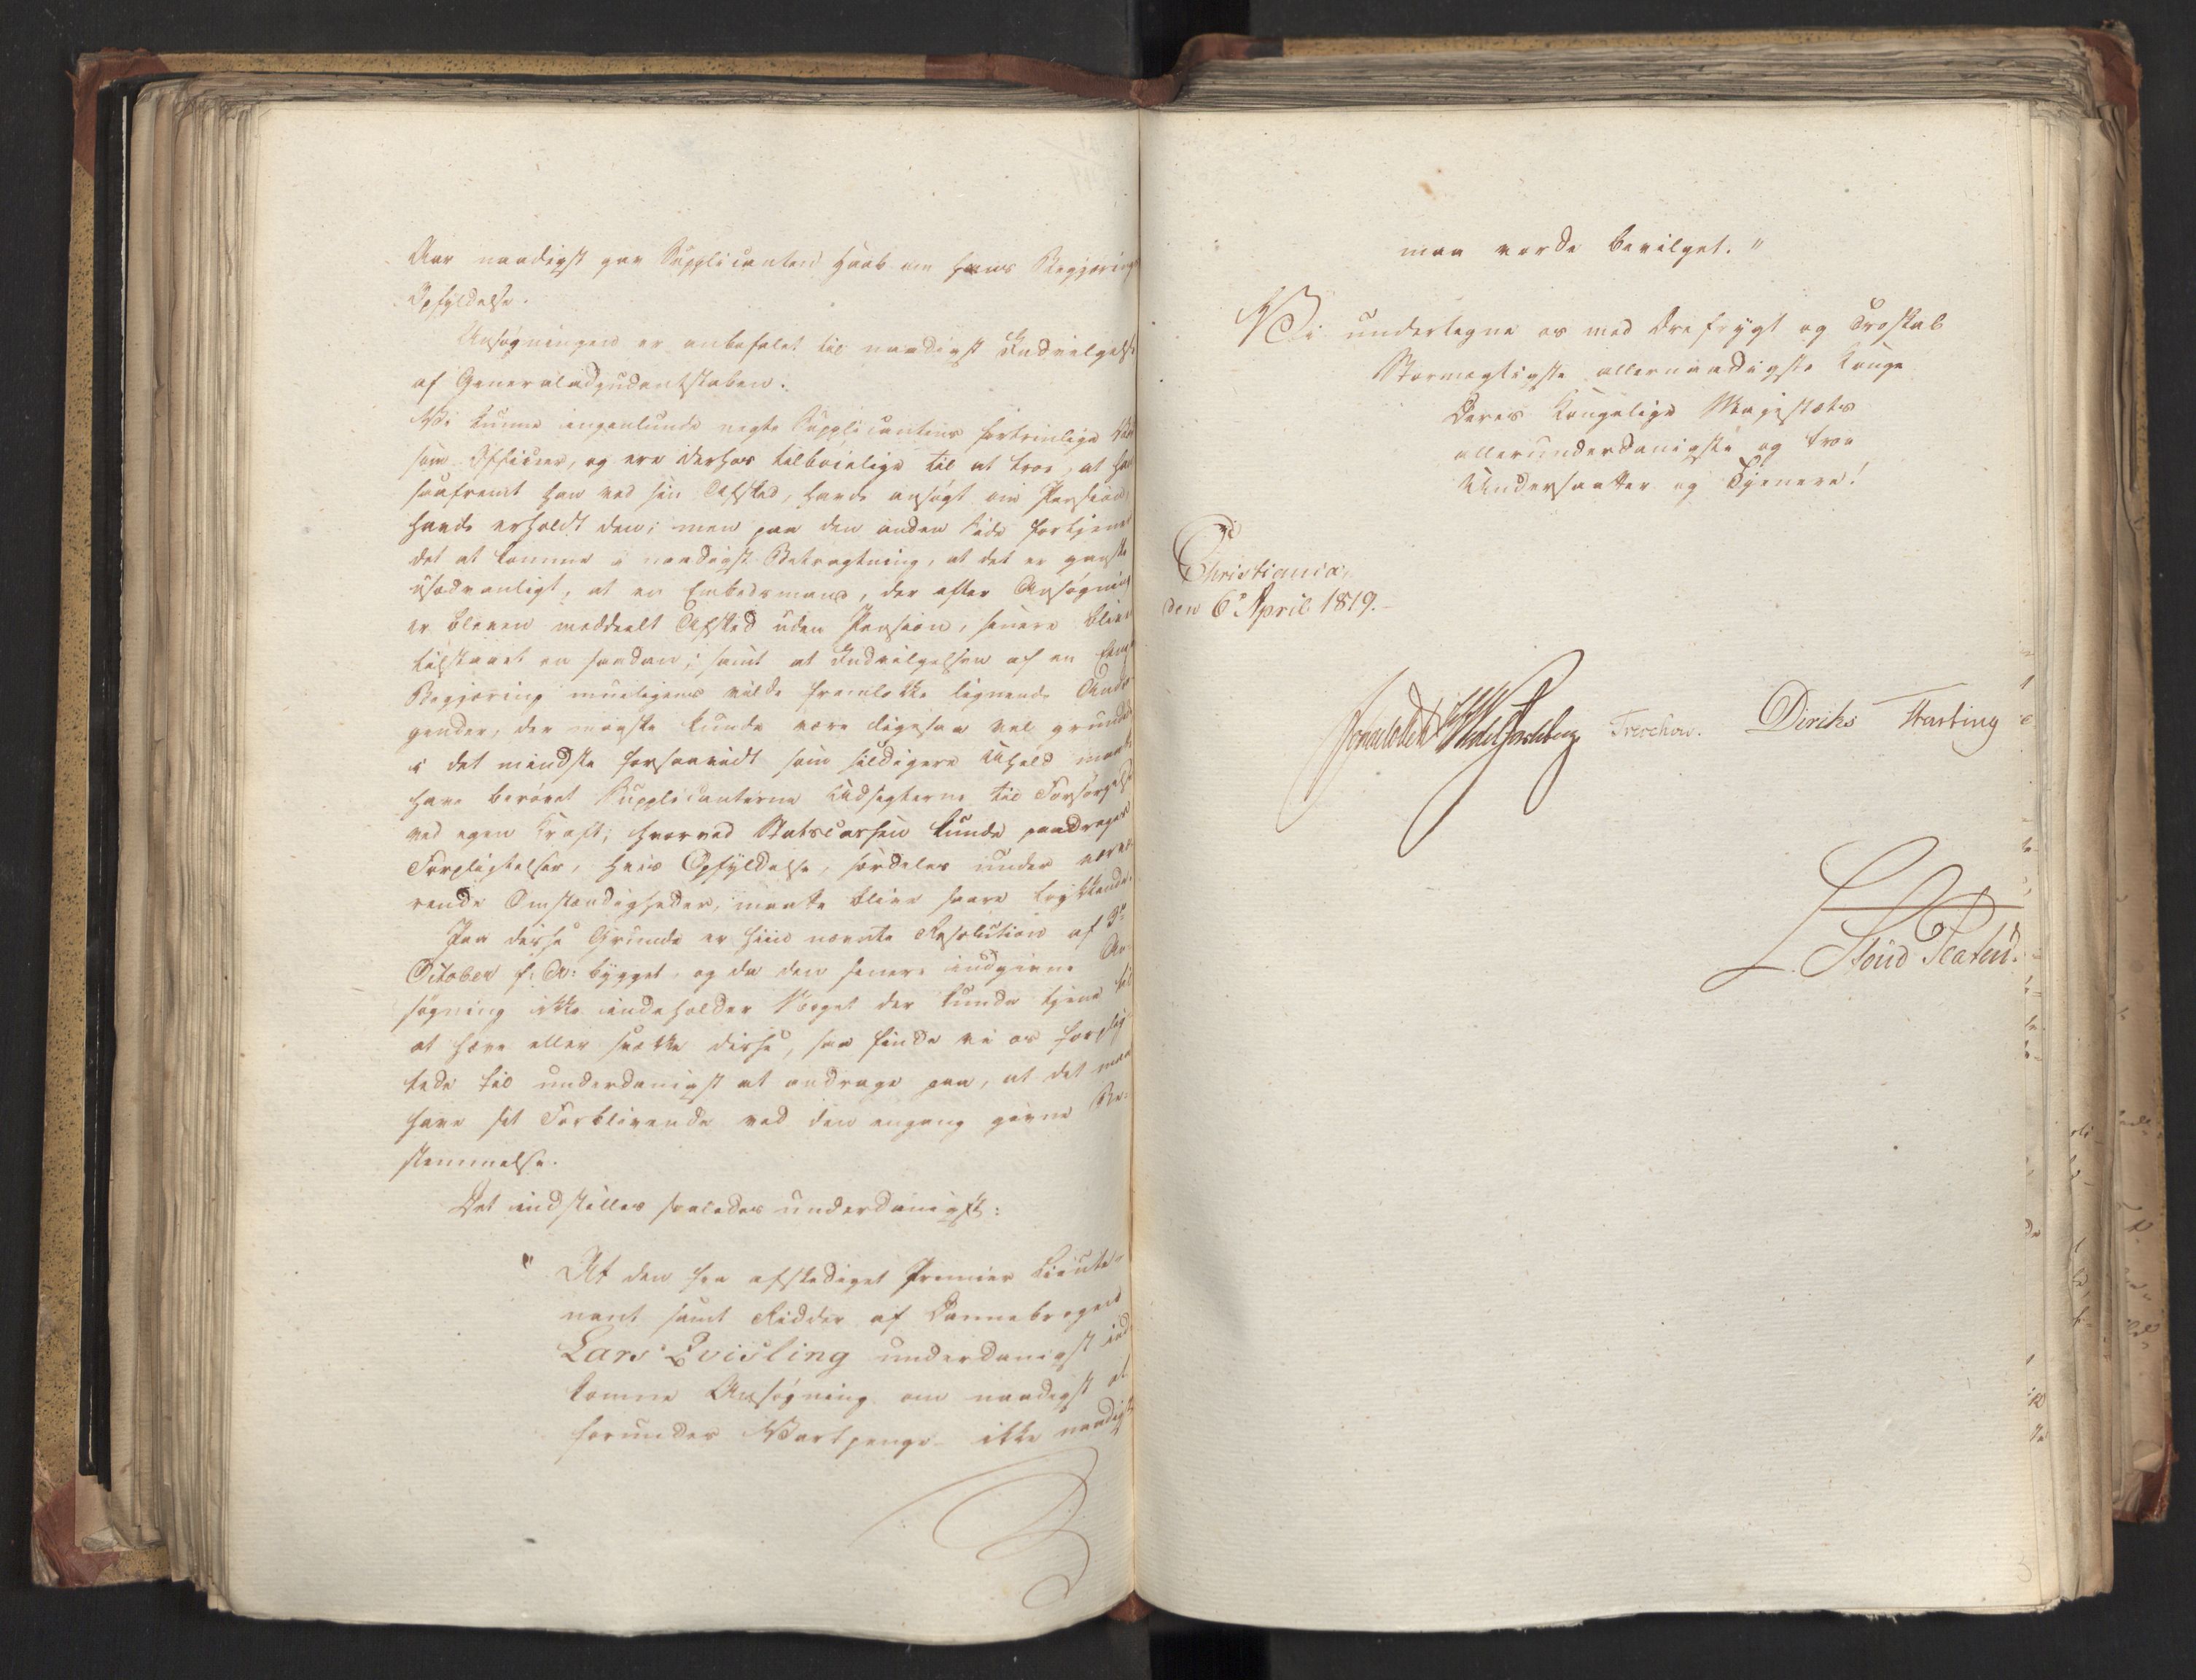 Aar naadigst gav Supplicanten Haab om hans Begjærings
Opfyldelse.
Ansøgningen er anbefalet til naadigst Indvilgelse
af Generaladjudantstaben.
Vi kunne ingenlunde negte Supplicantens fortrinlige
som Officier, og ere derhos tilbøielige til at troe, at han
saafremt han ved sin Afsked, havde ansøgt om Pension,
havde erholdt den; men paa den anden Side fortjener
det at komme i naadigst Betragtning, at det er ganske
usædvanligt, at en Embedsmand, der efter Ansøgning
er bleven meddeelt Afsked uden Pension, senere bliver
tilstaaet en saadan; samt at Indvilgelsen af en
Begjæring mueligens vilde fremlokke lignende Andra-
gender, der maaske kunde være ligesaa vel grundede
i det mindste forsaavidt som sildigere Uheld maatte
have berøvet Supplicanterne Udsigterne til Forsørgelse
ved egen Kraft; hvorved Statscassen kunde paadrages
Forpligtelser, hvis Opfyldelse, særdeles under nærvæ-
rende Omstændigheder, maatte blive saare trykkende.
Paa disse Grunde er hiin nævnte Resolution af 3de
October f: A: bygget, og da den senere indgivne An-
søgning ikke indeholder Noget der kunde tjene til
at hæve eller svække disse, saa finde vi os forplig-
tede til underdanigst at andrage paa, at det maa
have sit Forblivende ved den engang givne Be-
stemmelse.
Det indstilles saaledes underdanigst:
" At den fra afskediget Premier Lieute-
nant samt Ridder af Dannebrogen
Lars Qvisling underdanigst ind-
komne Ansøgning om naadigst at
forundes Vartpenge ikke naadigst
maa vorde bevilget."
Vi undertegne os med Ærefrygt og Troskab
Stormægtigste allernaadigste Konge
Deres Kongelige Majestæts
allerunderdanigste og troe
Undersaatter og Tjenere!
Christiania,
den 6te April 1819.
Treschow. Diriks Hasting
Stoud Platou.